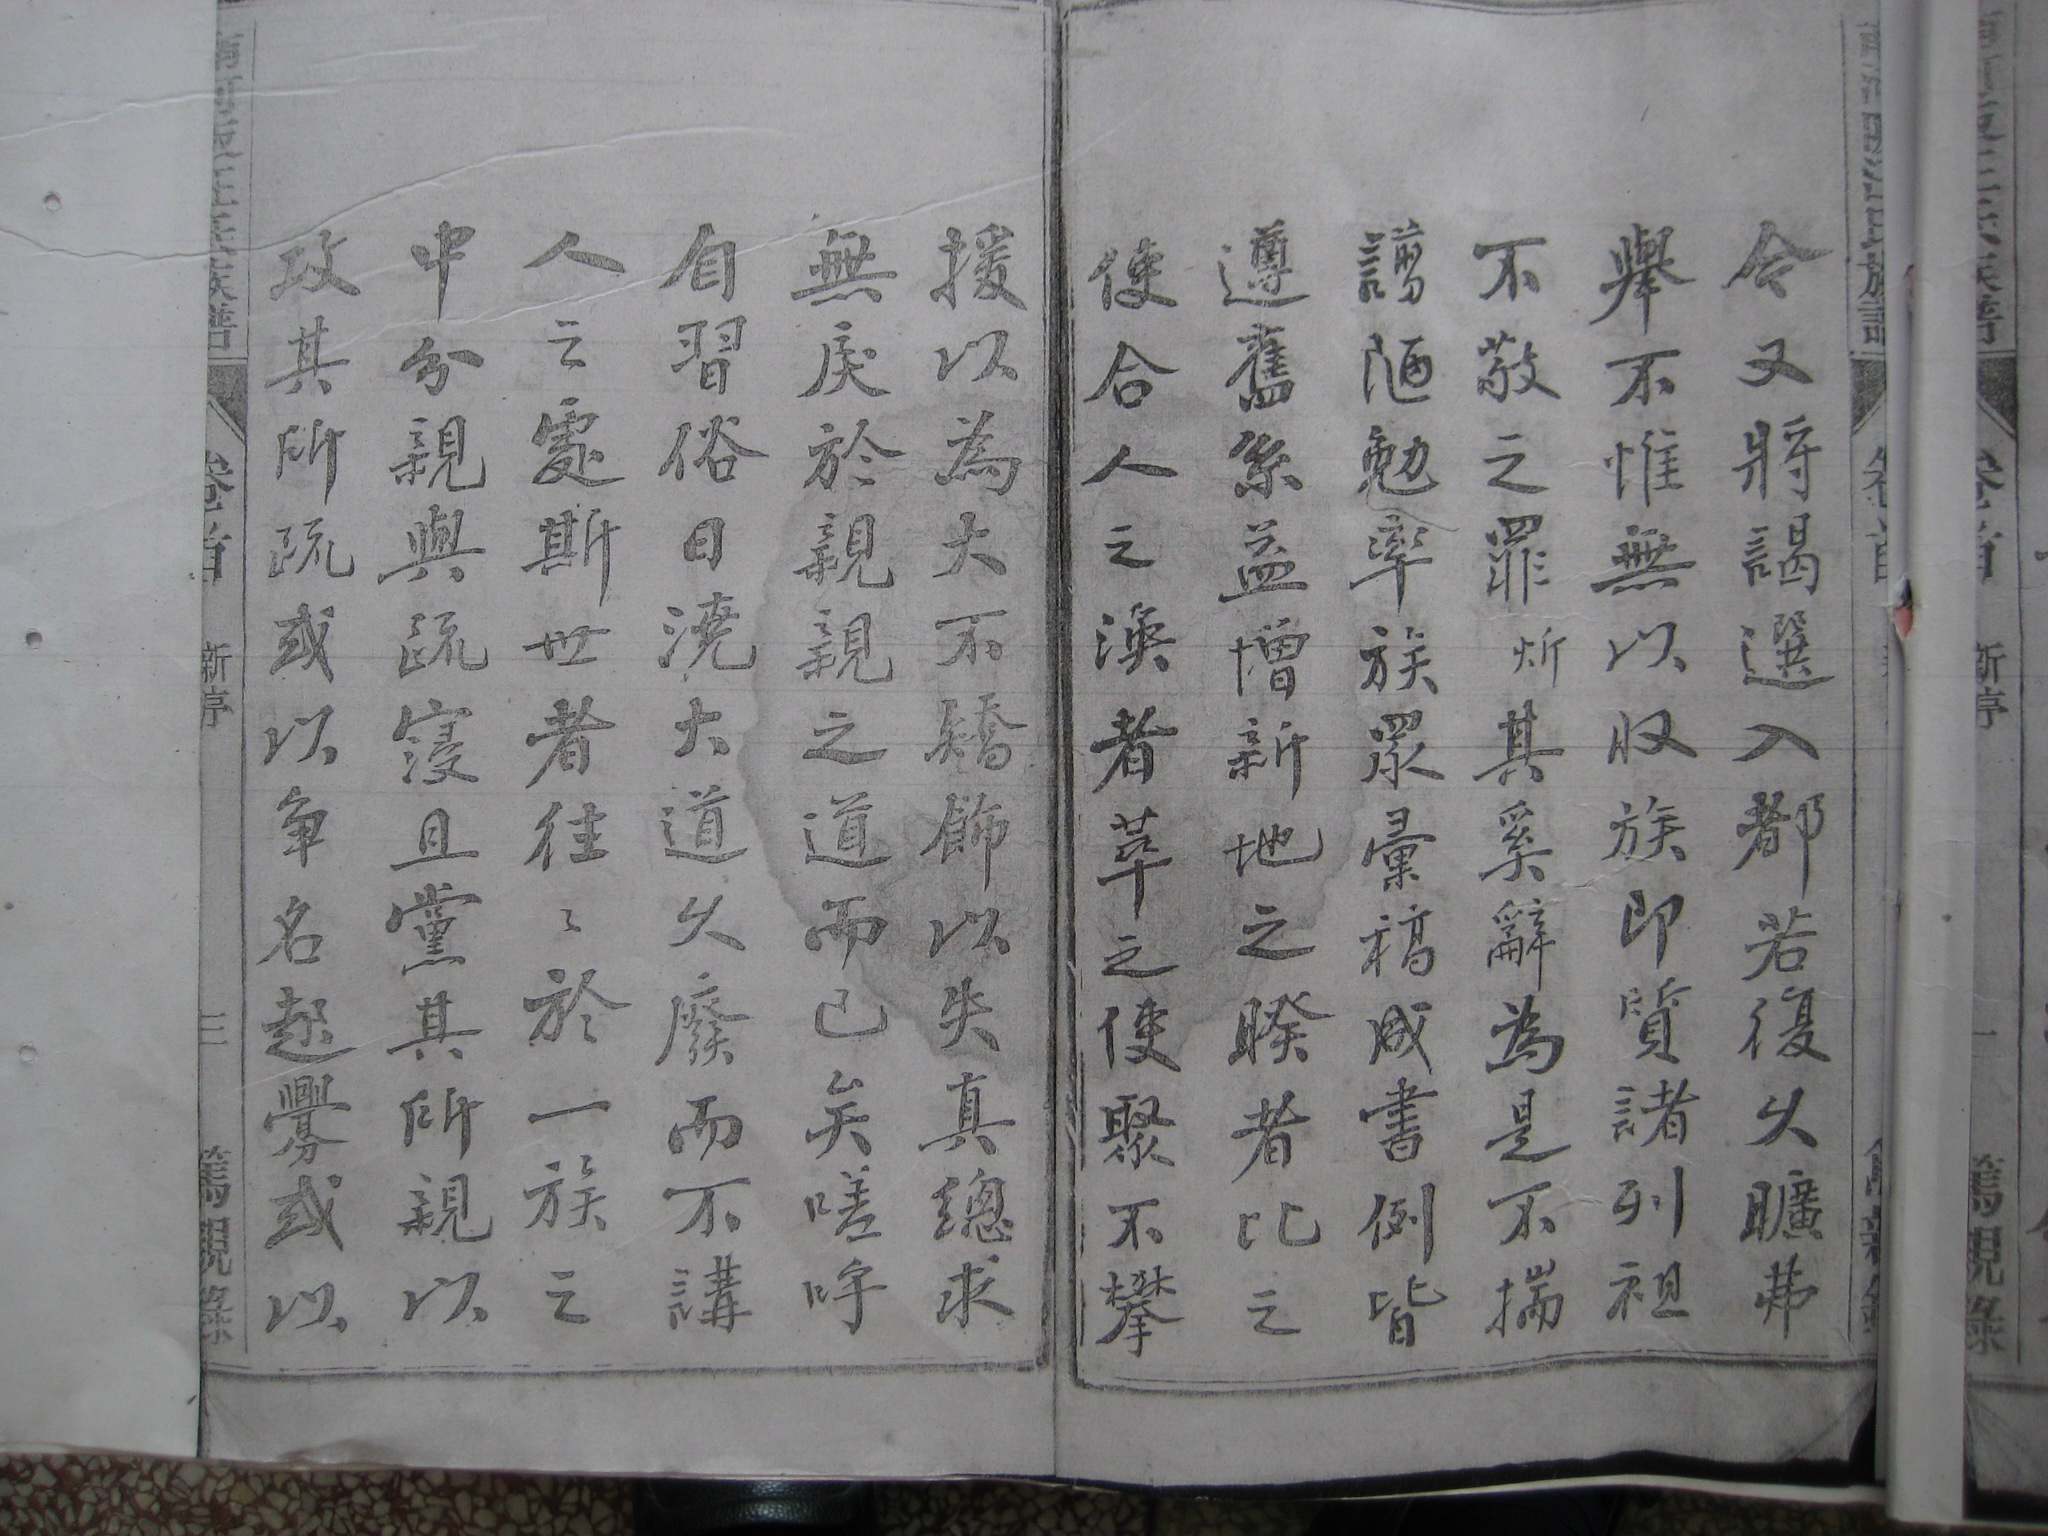 今又將謁選入都若復久曠弗
舉不惟無以收族即質諸列祖
不敬之罪斫其奚辭為是不揣
謭陋勉率族眾彙稿成書例皆
遵舊系益增新地之睽者比之
使合人之渙者萃之使聚不攀
援以為大不矯飾以失真總求
無戾於親親之道而已矣嗟呼
自習俗日澆大道久廢而不講
人之處斯世者往〻於一族之
中分親與疏寖且黨其所親以
攻其所疏或以爭名起釁或以
卷首
新亭
三